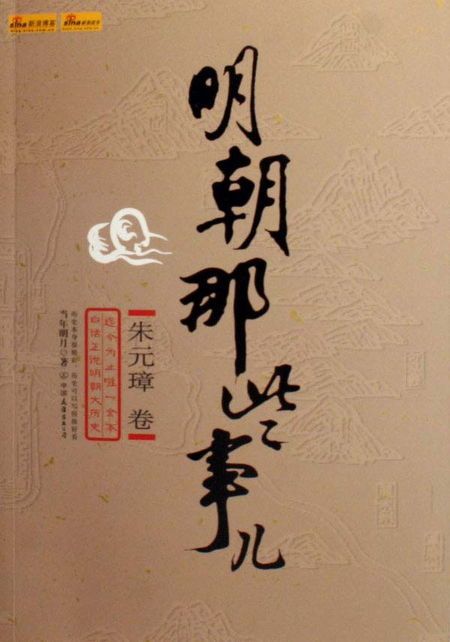 sina 新浪博客
sina 新浪读书
明朝那些事儿
朱元璋 卷
迄今为止唯一全本
白话正说明朝大历史
历史本身很精彩,历史可以写得很好看
当年明月◎著
中国友谊出版公司